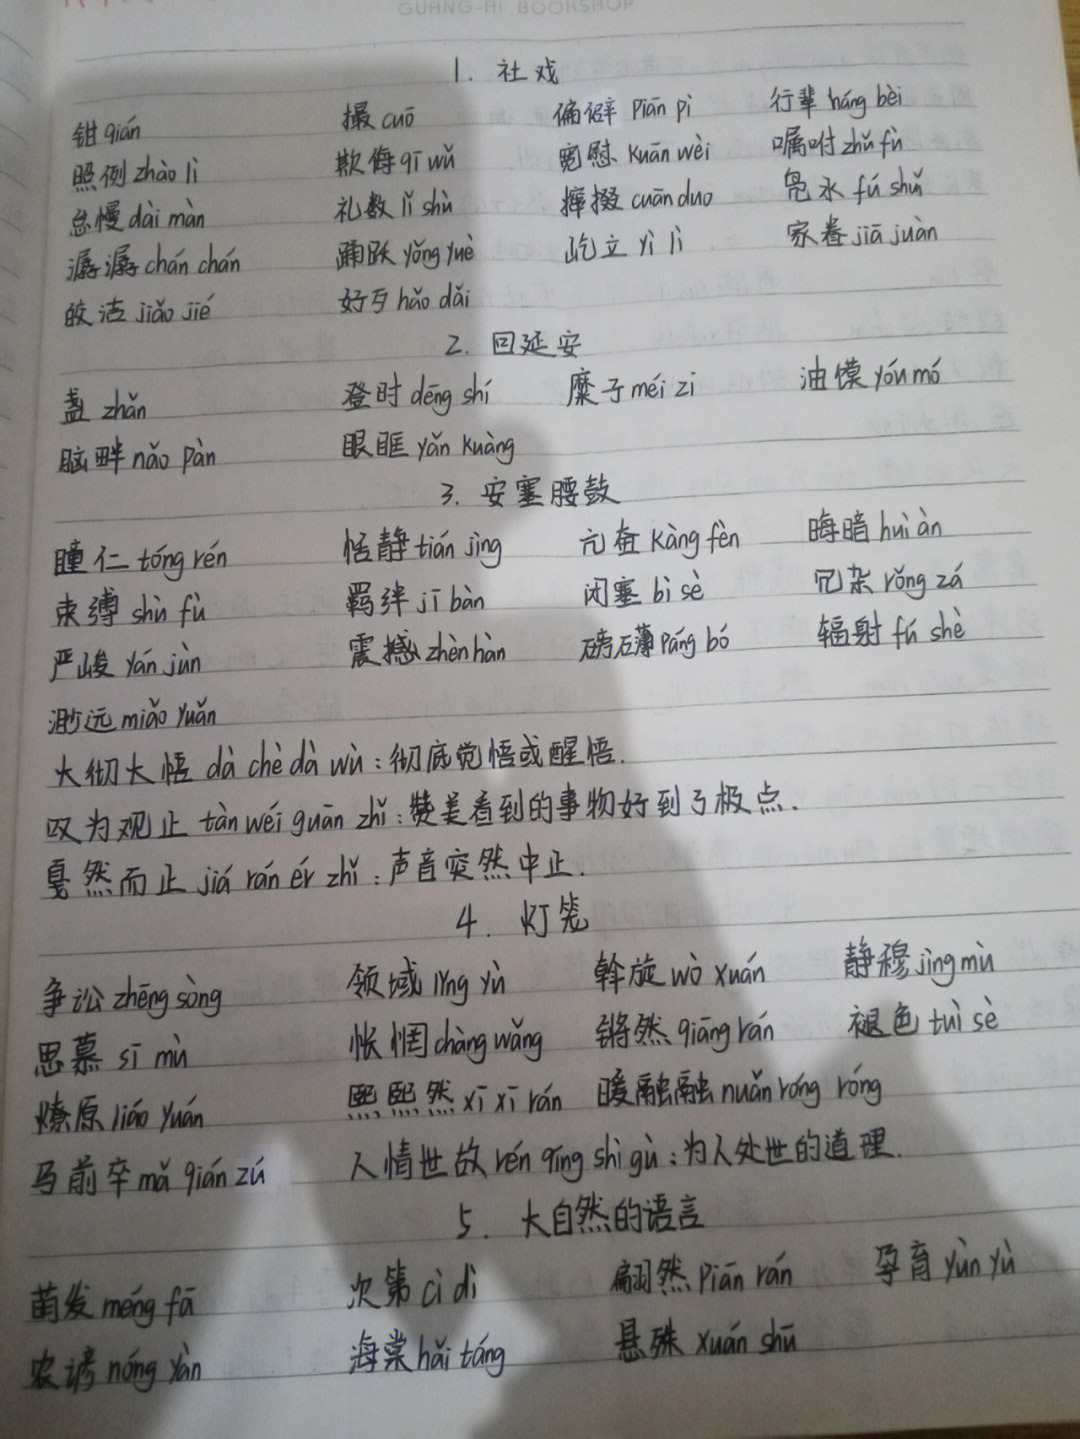 GUANG-AI BOOKSHOP
1. 社戏
钳 qián 撮 cuō 偏僻 piān pì 行辈 háng bèi
照例 zhào lì 欺侮 qī wǔ 宽慰 kuān wèi 嘱咐 zhǔ fù
怠慢 dài màn 礼数 lǐ shù 撺掇 cuān duo 凫水 fú shuǐ
潺潺 chán chán 踊跃 yǒng yuè 屹立 yì lì 家眷 jiā juàn
皎洁 jiǎo jié 好歹 hǎo dǎi
2. 回延安
盏 zhǎn 登时 dēng shí 糜子 méi zi 油馍 yóu mó
脑畔 nǎo pàn 眼眶 yǎn kuàng
3. 安塞腰鼓
瞳仁 tóng rén 恬静 tián jìng 亢奋 kàng fèn 晦暗 huì àn
束缚 shù fù 羁绊 jī bàn 闭塞 bì sè 冗杂 rǒng zá
严峻 yán jùn 震撼 zhèn hàn 磅礴 páng bó 辐射 fú shè
渺远 miǎo yuǎn
大彻大悟 dà chè dà wù:彻底觉悟或醒悟.
叹为观止 tàn wéi guān zhǐ:赞美看到的事物好到了极点.
戛然而止 jiá rán ér zhǐ:声音突然中止.
4. 灯笼
争讼 zhēng sòng 领域 lǐng yù 斡旋 wò xuán 静穆 jìng mù
思慕 sī mù 怅惘 chàng wǎng 锵然 qiāng rán 褪色 tuì sè
燎原 liáo yuán 熙熙然 xī xī rán 暖融融 nuǎn róng róng
马前卒 mǎ qián zú 人情世故 rén qíng shì gù:为人处世的道理.
5. 大自然的语言
萌发 méng fā 次第 cì dì 翩然 piān rán 孕育 yùn yù
农谚 nóng yàn 海棠 hǎi táng 悬殊 xuán shū